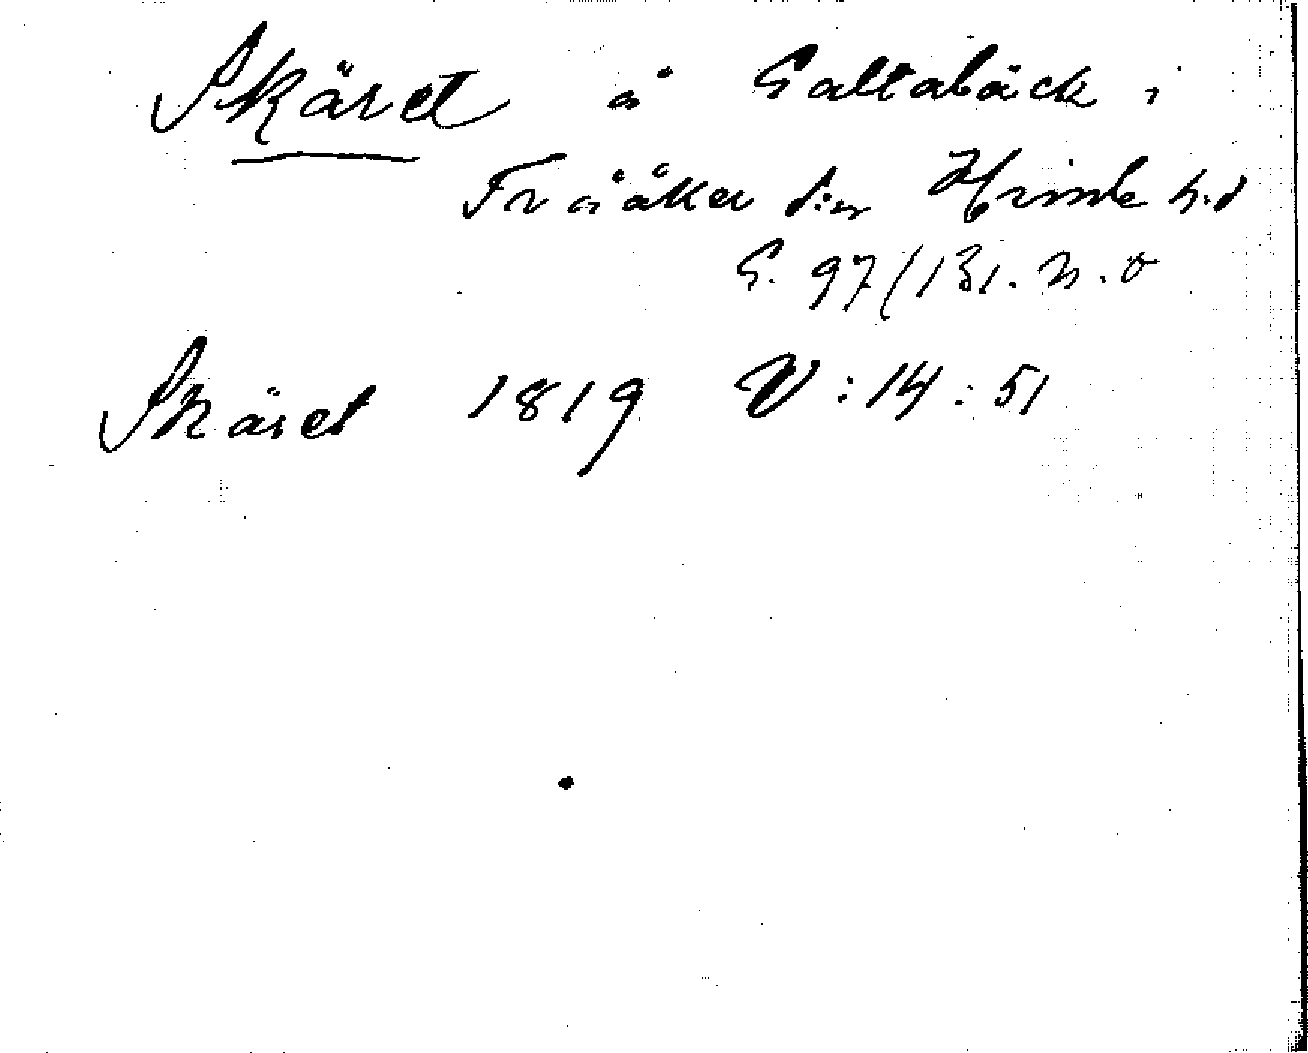 Skäret å Galtabäck i
Träslöv sn Himle hd
G. 97/131. n. o
Skäret 1819 V:14:51